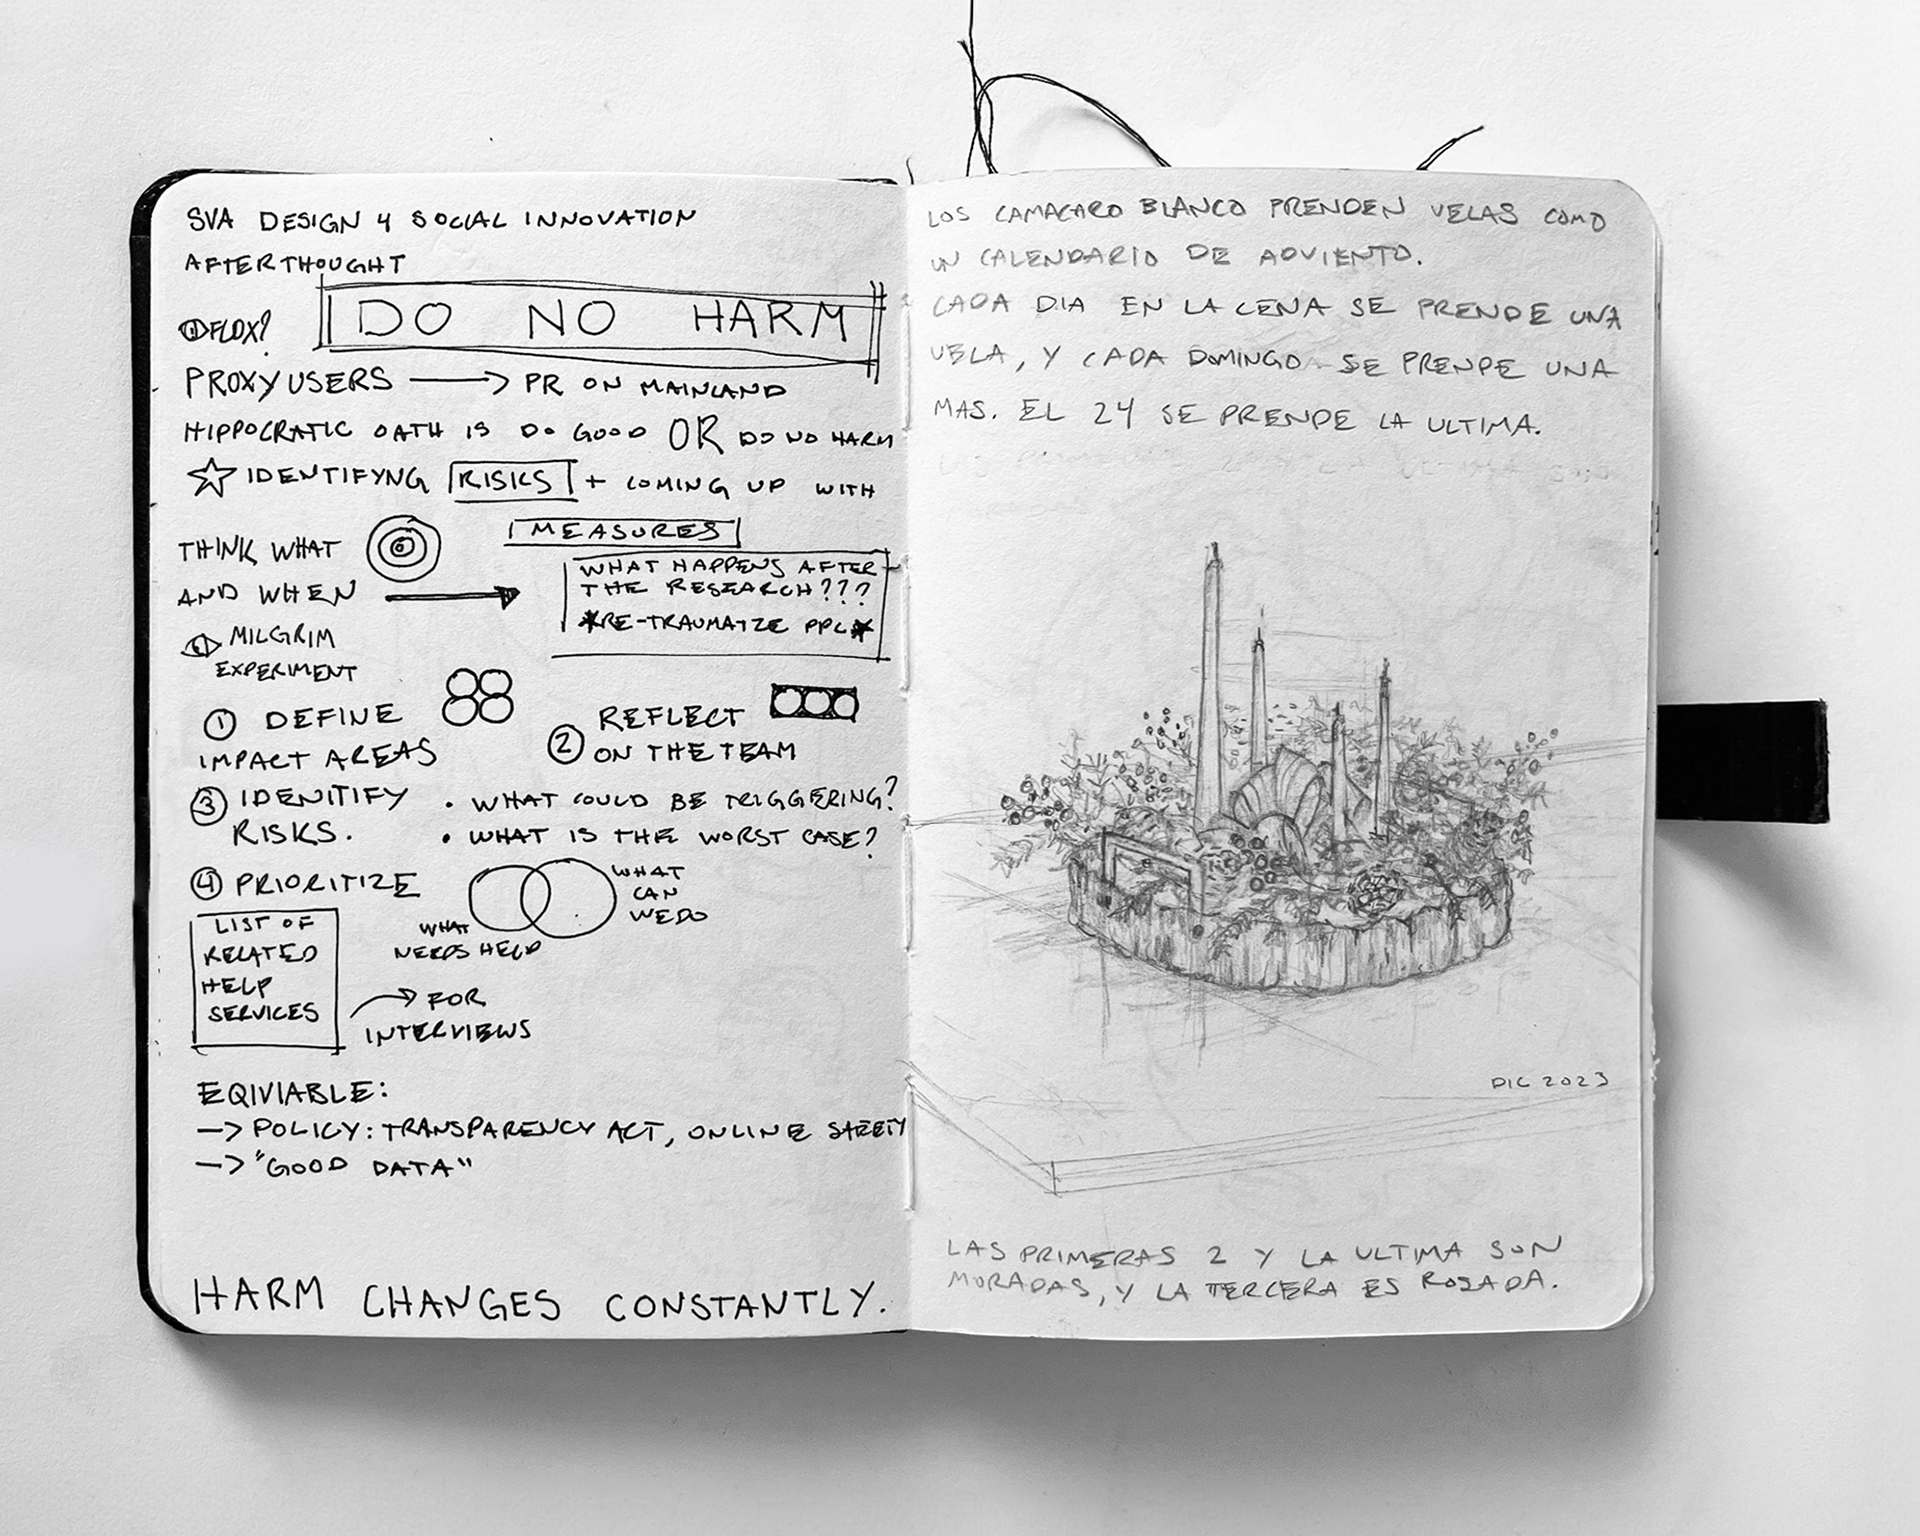 SVA DESIGN 4 SOCIAL INNOVATION
AFTERTHOUGHT
DO NO HARM
FLOX?
PROXY USERS → PR ON MAINLAND
HIPPOCRATIC OATH IS DO GOOD OR DO NO HARM
☆ IDENTIFYNG RISKS + COMING UP WITH
MEASURES
THINK WHAT
AND WHEN →
WHAT HAPPENS AFTER
THE RESEARCH???
*RE-TRAUMATZE PPL*
MILGRIM
EXPERIMENT
① DEFINE
IMPACT AREAS
② REFLECT
ON THE TEAM
③ IDENITIFY
RISKS.
• WHAT COULD BE TRIGGERING?
• WHAT IS THE WORST CASE?
④ PRIORITIZE
WHAT
NEEDS HELP
WHAT
CAN
WE DO
LIST OF
RELATED
HELP
SERVICES
→ FOR
INTERVIEWS
EQIVIABLE:
→ POLICY: TRANSPARENCY ACT, ONLINE SAFETY
→ "GOOD DATA"
HARM CHANGES CONSTANTLY.
LOS CAMACARO BLANCO PRENDEN VELAS COMO
UN CALENDARIO DE ADVIENTO.
CADA DIA EN LA CENA SE PRENDE UNA
VELA, Y CADA DOMINGO SE PRENDE UNA
MAS. EL 24 SE PRENDE LA ULTIMA.
DIC 2023
LAS PRIMERAS 2 Y LA ULTIMA SON
MORADAS, Y LA TERCERA ES ROSADA.